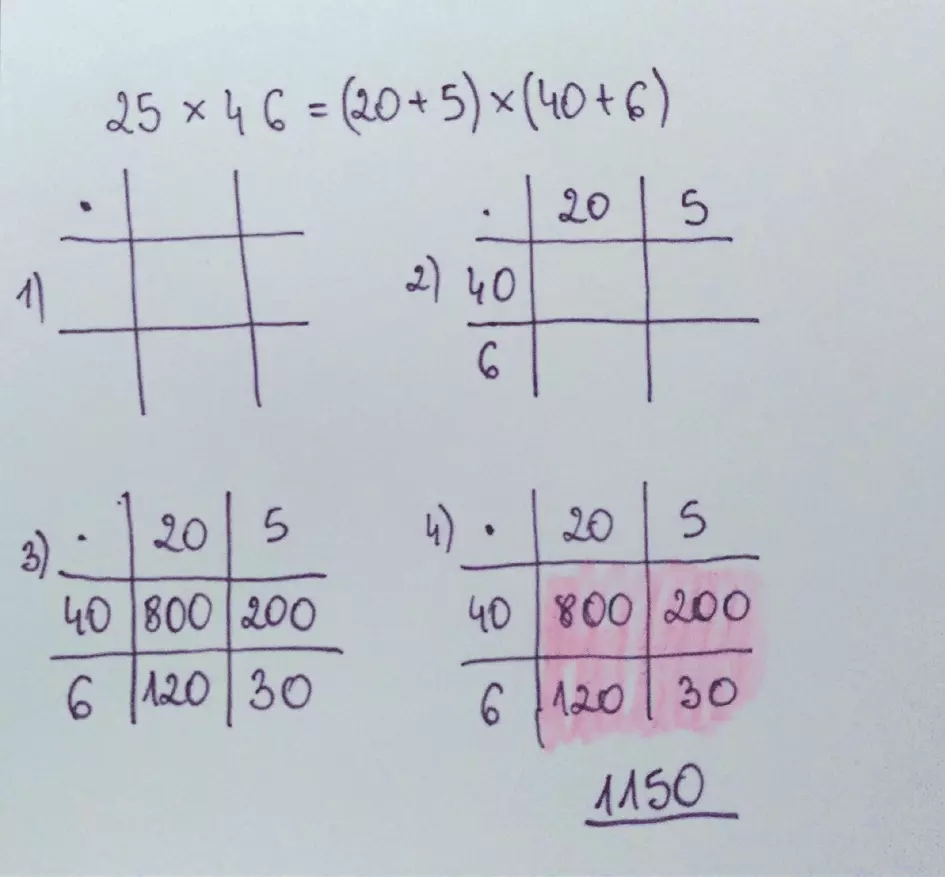 25 × 46 = (20 + 5) × (40 + 6)
1) ·
2) · 20 5
40
6
3) · 20 5
40 800 200
6 120 30
4) · 20 5
40 800 200
6 120 30
1150